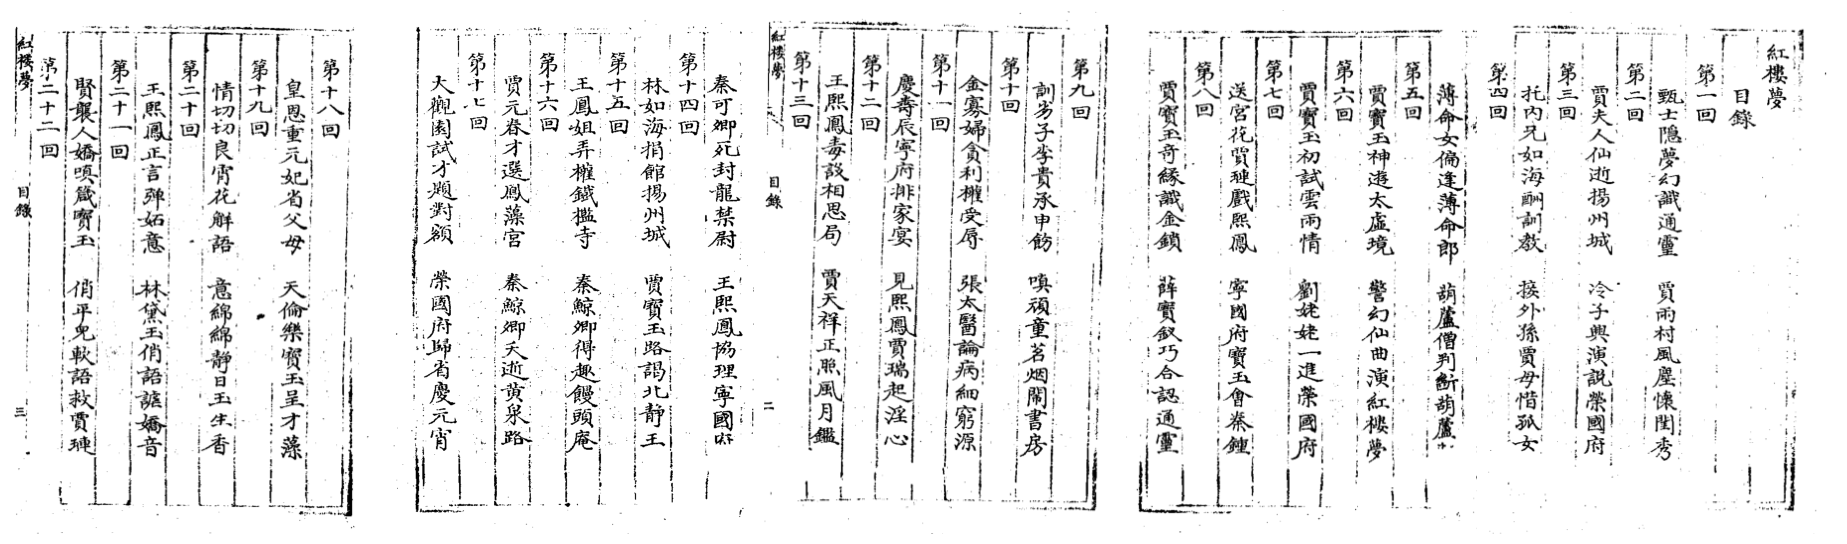 紅樓夢
目錄
第一回
甄士隱夢幻識通靈　賈雨村風塵懷閨秀
第二回
賈夫人仙逝揚州城　冷子興演說榮國府
第三回
托內兄如海酬訓教　接外孫賈母惜孤女
第四回
薄命女偏逢薄命郎　葫蘆僧判斷葫蘆
第五回
賈寶玉神遊太虛境　警幻仙曲演紅樓夢
第六回
賈寶玉初試雲雨情　劉姥姥一進榮國府
第七回
送宮花賈璉戲熙鳳　寧國府寶玉會秦鍾
第八回
賈寶玉奇緣識金鎖　薛寶釵巧合認通靈
第九回
訓劣子李貴承申飭　嗔頑童茗烟鬧書房
第十回
金寡婦貪利權受辱　張太醫論病細窮源
第十一回
慶壽辰寧府排家宴　見熙鳳賈瑞起淫心
第十二回
王熙鳳毒設相思局　賈天祥正照風月鑑
第十三回
紅樓夢　目錄　二
秦可卿死封龍禁尉　王熙鳳協理寧國府
第十四回
林如海捐館揚州城　賈寶玉路謁北靜王
第十五回
王鳳姐弄權鐵檻寺　秦鯨卿得趣饅頭庵
第十六回
賈元春才選鳳藻宮　秦鯨卿夭逝黃泉路
第十七回
大觀園試才題對額　榮國府歸省慶元宵
第十八回
皇恩重元妃省父母　天倫樂寶玉呈才藻
第十九回
情切切良宵花解語　意綿綿靜日玉生香
第二十回
王熙鳳正言彈妬意　林黛玉俏語謔嬌音
第二十一回
賢襲人嬌嗔箴寶玉　俏平兒軟語救賈璉
第二十二回
紅樓夢　目錄　三